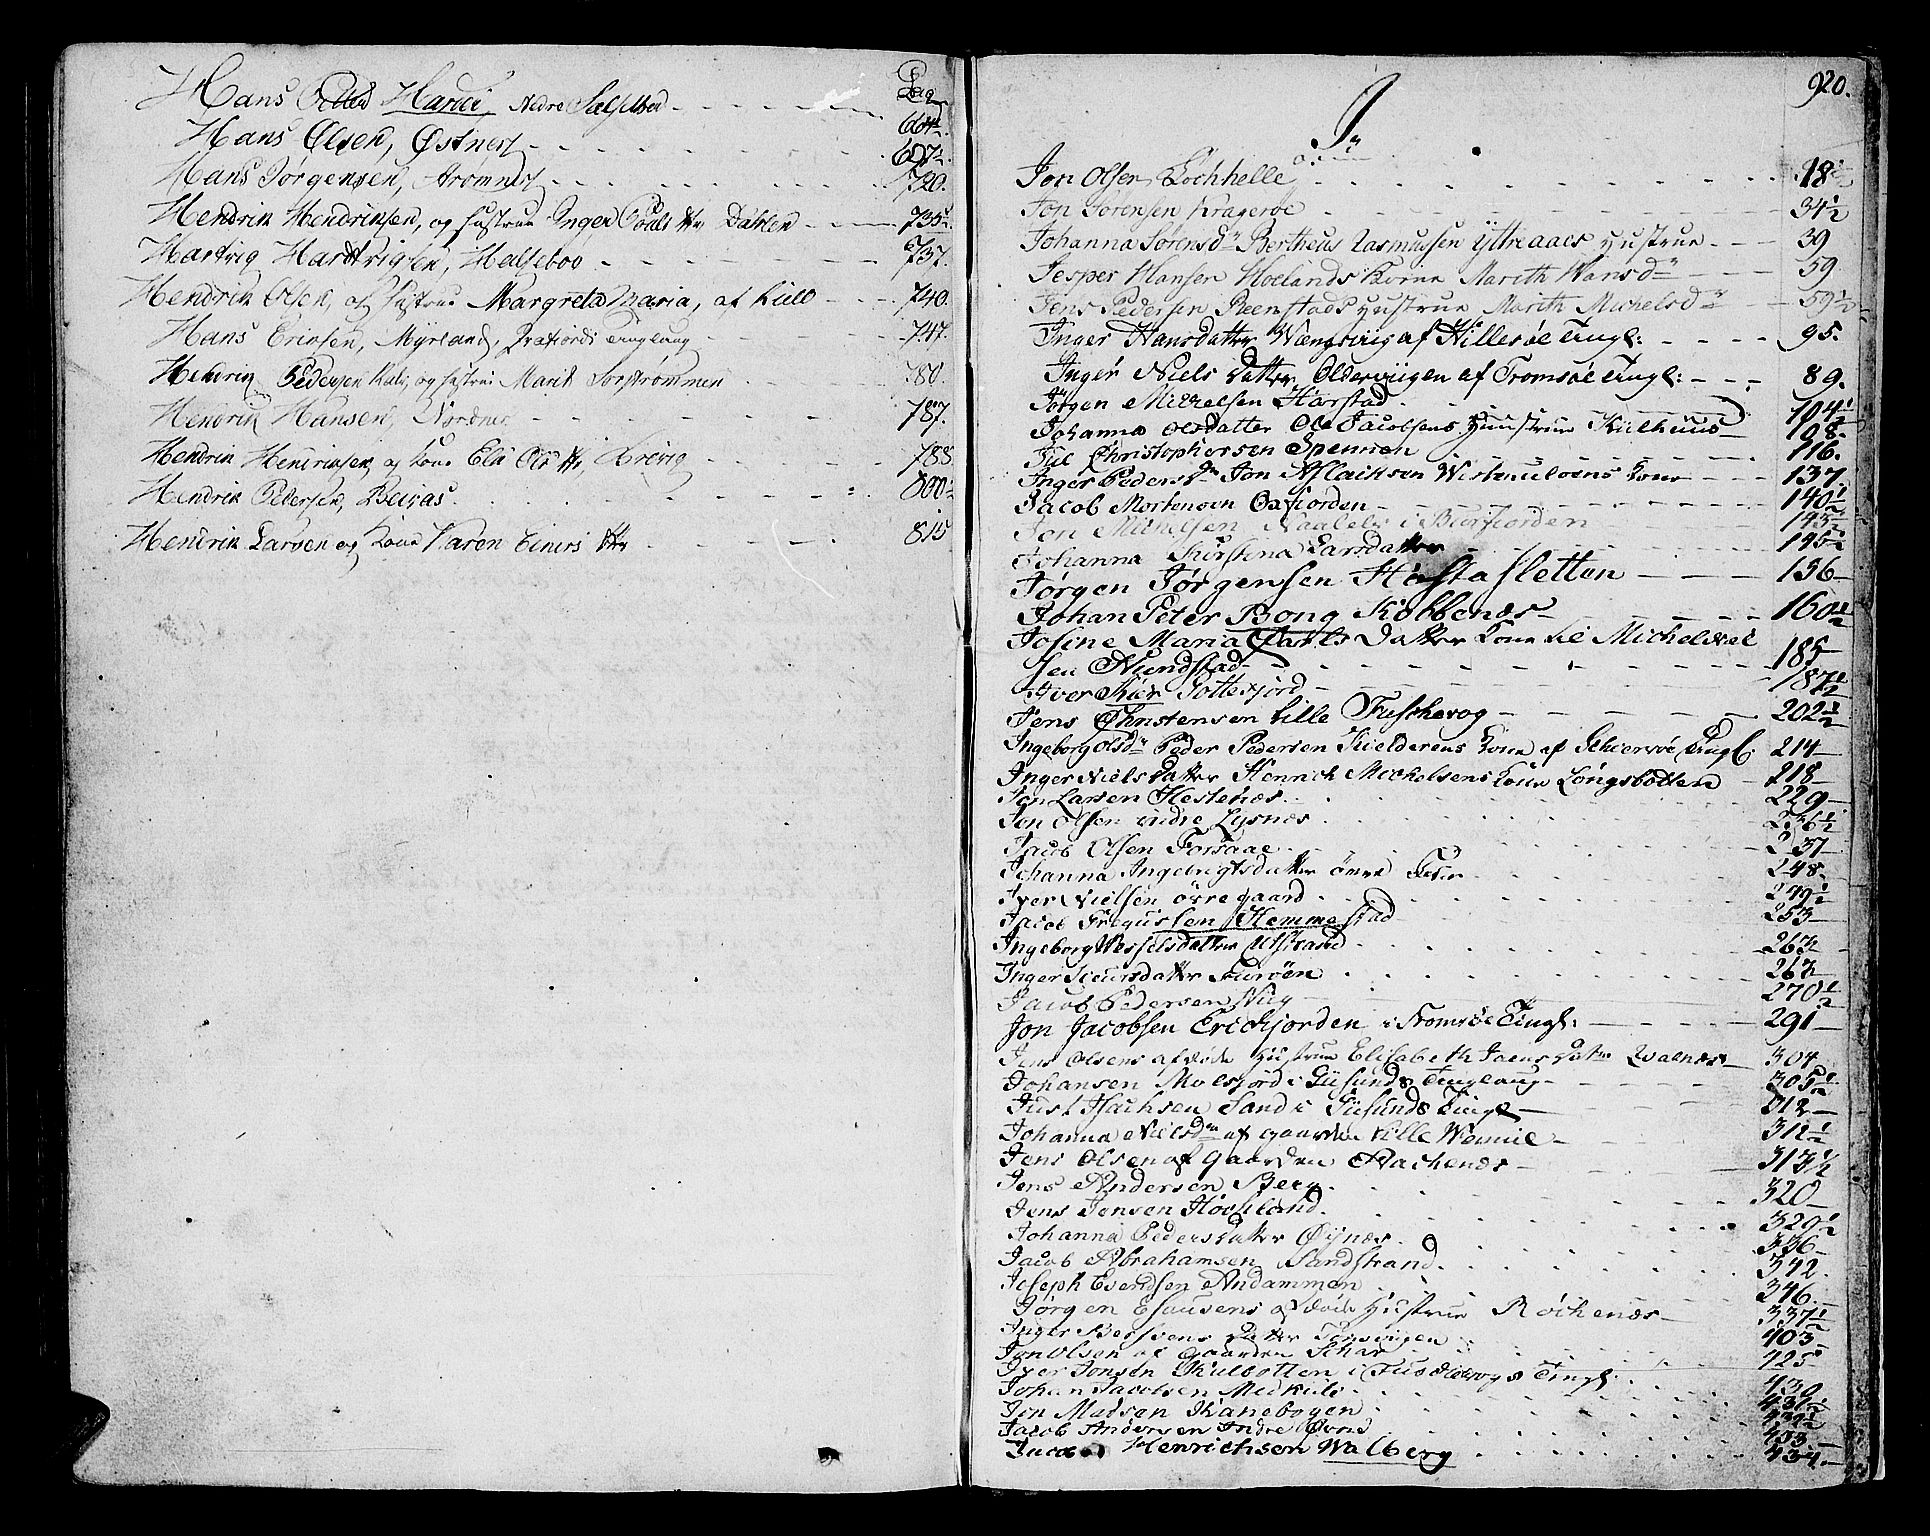 Pag
Hans Hardei, Nedre Salselved 604
Hans Olsen, Østnest 607½
Hans Jørgensen, Strømnest 720.
Hendrik Hendriksen, og Hustrue Inger Poals dtr Dahlen 735½
Hartvig Hardtvigsen, Helseboe 737.
Hendrik Olsen, og Hustrue Margreta Maria, af Kiell 740.
Hans Eriksen, Myrland, Gratfiords Tinglaug 747.
Hendrik Pedersen Kali, og Hustrue Marit Sørstrømmen 780.
Hendrik Hansen, Nordnes 787.
Hendrik Hendriksen, og Kone Eli Ols dtr, Krevig 788
Hendrik Pedersen, Beivas 800½
Hendrik Larsen og Kone Karen Einers dtr 815
920.
J
Jon Olsen Lochhelle 18½
Jon Sørensen Kragerøe 34½
Johanna Sørensdr Bertheus Rasmussen Yttreaaes Hustrue 39
Jesper Hansen Hoelands Kone Marith Hansdr 59
Jens Pedersen Reenstads Hustrue Marith Michelsdr 59½
Inger Hansdatter Wængsvig af Hillesøe Tingl: 95.
Inger Niels datter Oldervigen af Tromsøe Tingl: 89.
Jørgen Mickelsen Harstad 104½
Johanna Olsdatter Ole Jacobsens Hustrue Kulhuus 108
Christophersen Spennen 116.
Inger Pedersdr Jon Aslachsen Kone 137
Jacob Mortensen Oxfjorden 140½
Jon Michelsen i Burfiorden 145½
Johanna Kirstina Larsdatter 145½
Jørgen Jørgensen Hastasletten 156
Johan Peter Bong Kobbenæs 160½
Josine Maria Carls Datter Kone til Michel Niel
sen Nundstad 185
Iver Kier Gottesfjord 187½
Jens Christensen Lille Fuskevog 202½
Ingeborg Olsdr Peder Pedersen Kielderens Kone af Schiervøe Tingl: 214
Inger Niels datter Henrich Michelsens Kone Longsbotten 218
Jon Larsen Hestenæs 229
Jon Olsen indre Lysnæs 236½
Jacob Olsen Forsaae 237
Johanna Ingebrigtsdatter 248
Iver Nielsen Øvregaard 249½
Jacob Hemmestad 253
Ingeborg Wesselsdatter Elfstrand 263
Inger datter Furøen 267
Jacob Pedersen 270½
Jon Jacobsen Erickfjorden i Tromsøe Tingl: 291
Jens Olsens afdøde Hustrue Elisabeth Jaens datr Walnæs 304
Johansen Molsfiord i Giisunds Tinglaug 305½
Just Isachsen Sand i Giisunds Tingl 312
Johanna Nielsdr af gaarden Lille 312½
Jens Olsen af gaarden Rachenæs 313½
Jens Andersen Berg 320
Jens Jensen Hochland 329½
Johanna Pedersdatter Øynæs 336
Jacob Abrahamsen Sandstrand 342
Joseph Evertsen Andammen 346
Jørgen Esausens afdøde Hustrue Røckenæs 337½
Inger Berssvens datter Tensvigen 403
Jon Olsen af Gaarden Schar 425
Iver Jonsen Kulbotten i Tingl: 430
Johan Jacobsen Meckule 431½
Jon Madsen Kanebogen 431½
Jacob Andersen Indre 433
Jacob Henrichsen Walberg 434